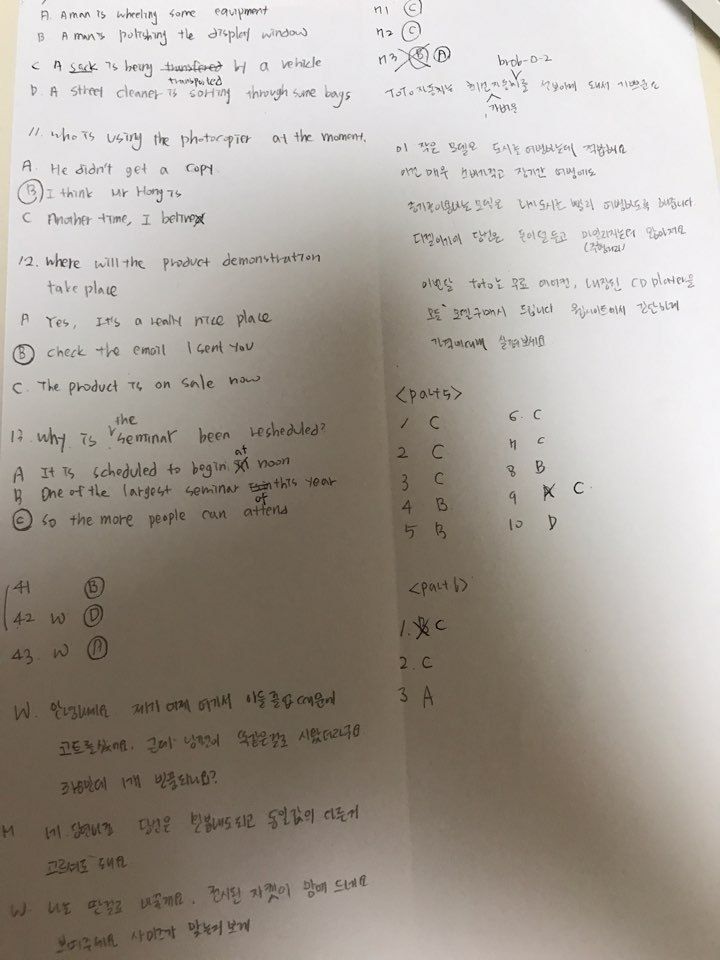 A. A man is wheeling some equipment
B A man is polishing the display window
C A sack is being transfered transported by a vehicle
D. A street cleaner is sorting through some bags
11. who is using the photocopier at the moment.
A. He didn't get a copy
B I think Mr Hong is
C Another time, I believe
12. where will the product demonstration
take place
A Yes, It's a really nice place
B check the email I sent you
C. The product is on sale now
13. why is the seminar been resheduled?
A It is scheduled to begin at noon
B One of the largest seminar of this year
C so the more people can attend
41 B
42 W D
43. W A
W. 안녕하세요 제가 어제 여기서 아들 졸업 때문에
코트를 샀어요. 근데 남편이 똑같은걸로 사왔더라구요
1개 반품되나요?
M 네 당연하죠 당신은 환불해도되고 동일값의 다른거
고르셔도 돼요
W. 나는 딴걸로 바꿀게요. 전시된 자켓이 맘에 드네요
보여주세요 사이즈가 맞는지 보게
71 C
72 C
73 B A
brob-0-2
TOTO 자동차는 최신자동차를 선보이게 돼서 기쁘
가벼운
이 작은 모델은 도시는 여행하는데 적합해요
아간 매우 장기간 여행에도
모델은 빨리 여행하도록 해줍니다
당신은 돈이 덜 들고
이번달 toto는 무료 에어컨, 내장된 CD player을
모든 모델 구매시 드립니다 웹사이트에서 간단하게
살펴보세요
<part5>
1 C
2 C
3 C
4 B
5 B
6. C
7 C
8 B
9 A C
10 D
<part6>
1. B C
2. C
3 A